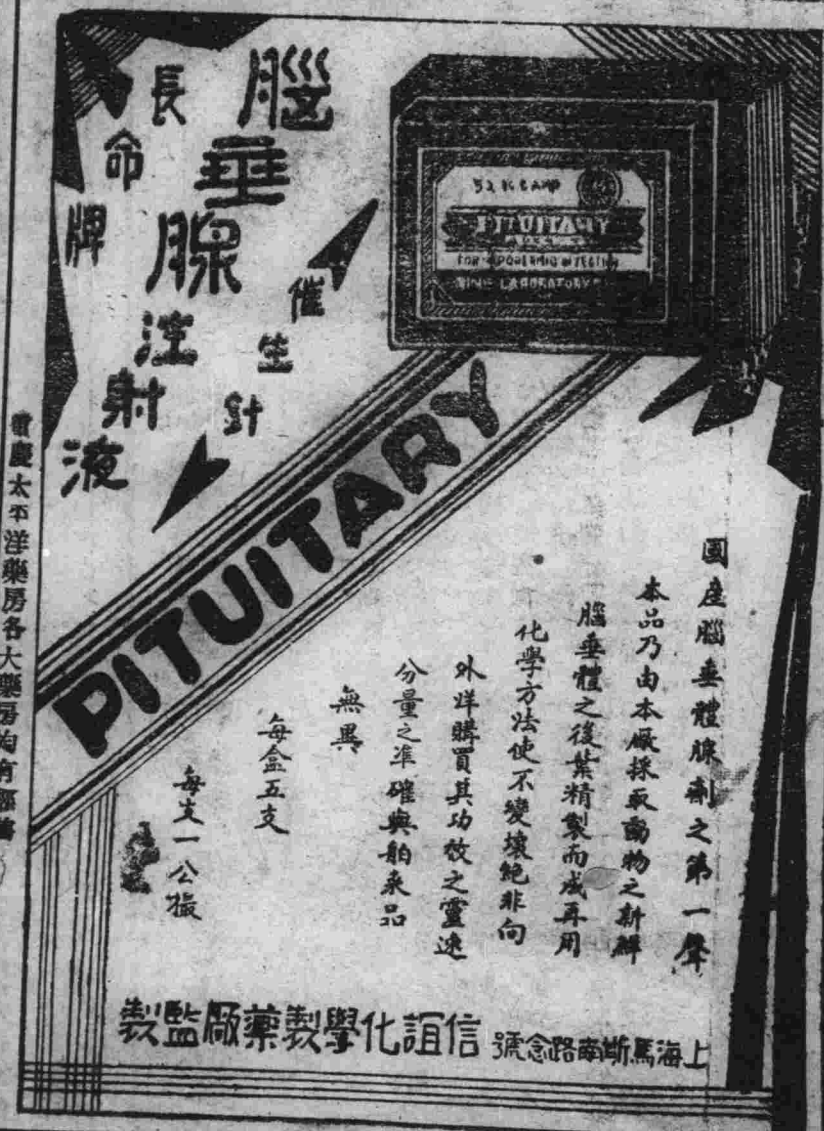 長命牌
腦垂腺注射液
催生針
PITUITARY
FOR HYPODERMIC INJECTION
PITUITARY
國產腦垂體腺劑之第一聲
本品乃由本廠採取動物之新鮮
腦垂體之後葉精製而成再用
化學方法使不變壞絕非向
外洋購買其功效之靈速
分量之準確與舶來品
無異
每盒五支
每支一公撮
上海馬斯南路念號
信誼化學製藥廠監製
重慶太平洋藥房各大藥房均有經售